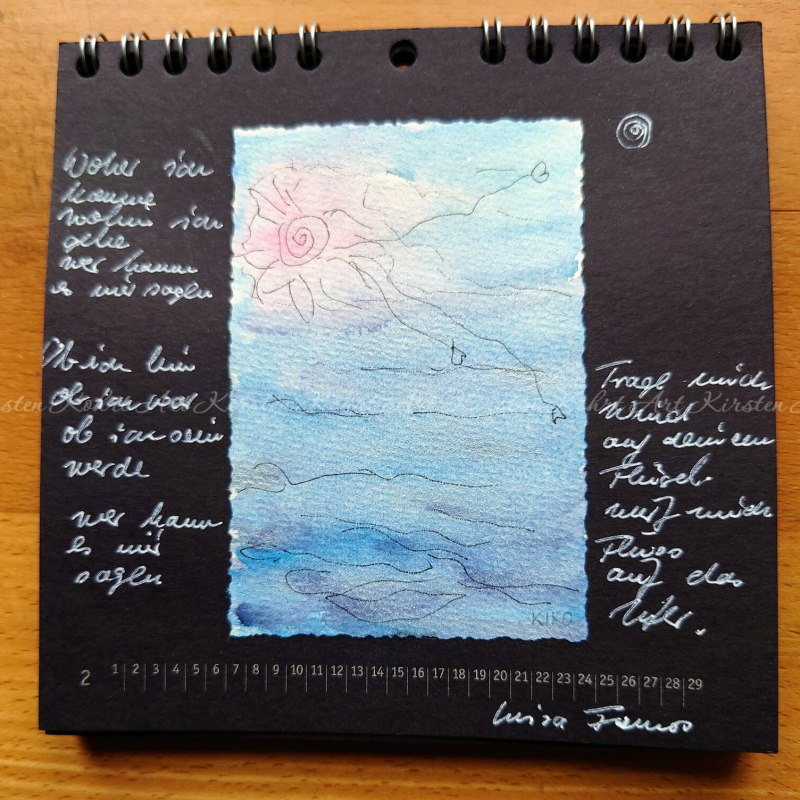 Woher ich
komme
wohin ich
gehe
wer kann
es mir sagen
Ob ich bin
ob ich war
ob ich sein
werde
wer kann
es mir
sagen
Tragt mich
Wind
auf deinem
Flügel
werf mich
Fluss
auf das
Ufer.
KIKO
2 1 2 3 4 5 6 7 8 9 10 11 12 13 14 15 16 17 18 19 20 21 22 23 24 25 26 27 28 29
Luisa Famos
Art Kirsten